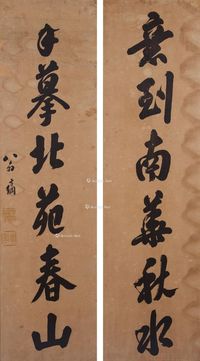 意到南华秋水
手摹北苑春山
八翁